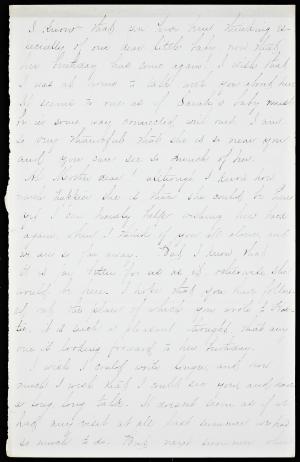 I know that you have been thinking es-
pecially of our dear little baby now that
her birthday has come again! I wish that
I was at home to talk with you about her
It seems to me as if Sarah's baby must
be in some way connected with ours. I am
so very thankful that she is so near you
and you can see so much of her.
Oh! Mother dear! although I know how
much happier she is than she could be here
yet I can hardly help wishing her back
again, when I think of you all alone, and
we are so far away. But, I know that
it is far better for us as it is, otherwise she
would be here. I hope that you have follow-
ed out the plan of which you wrote to
tie. it is such a pleasant thought, that any
one is looking forward to her birthday.
I wish I could write longer, and how
much I wish that I could see you and have
a long, long talk. It doesn't seem as if we
had any visit at all last summer we had
so much to do. But next summer when